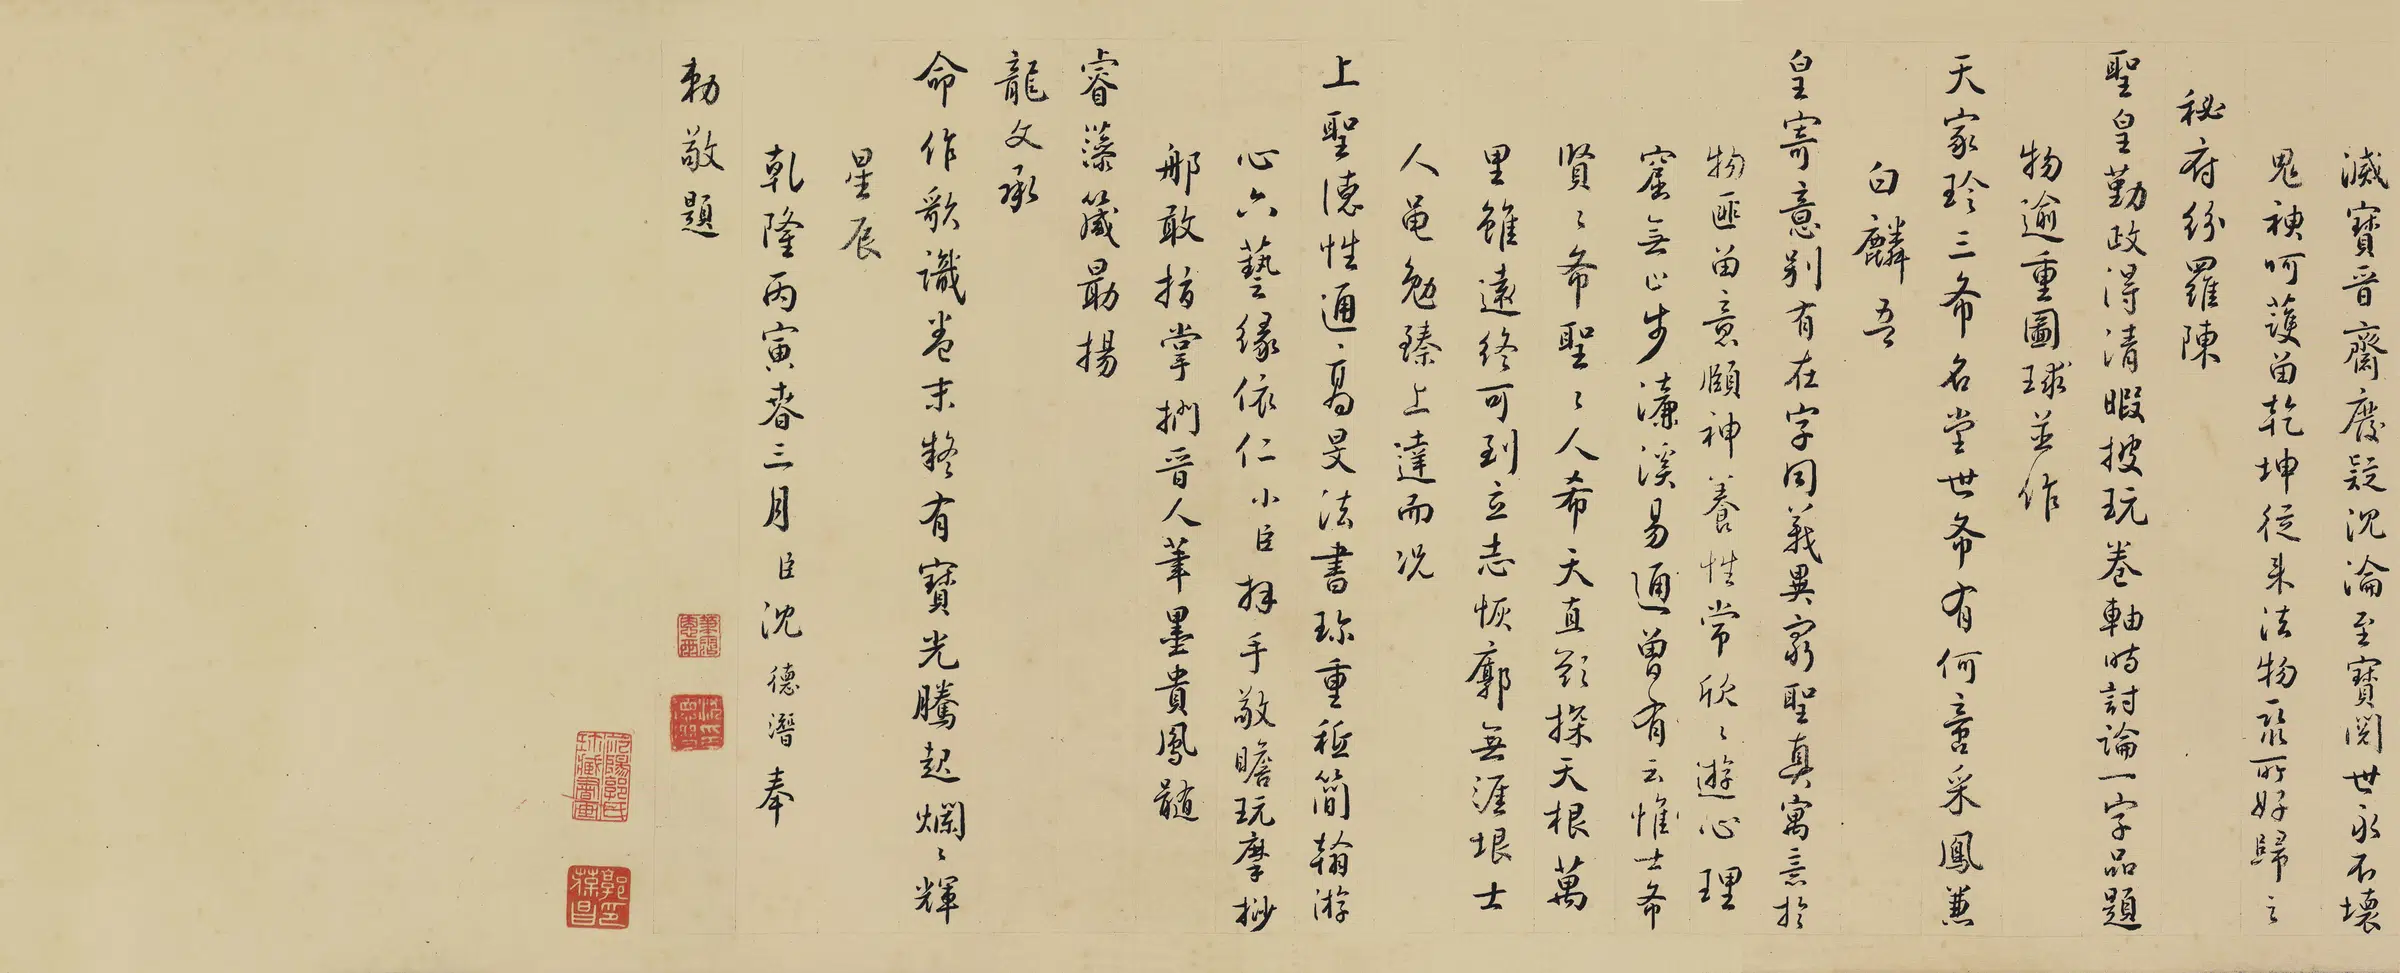 滅寶晉齋廢疑沉淪至寶閱世永不壞
鬼神呵護留乾坤從來法物聚所好歸之
秘府紛羅陳
聖皇勤政得清暇披玩卷軸時討論一字品題
物逾重圖球並作
天家珍三希名堂世希有何啻采鳳兼
白麟吾
皇寄意别有在字同義異窮聖真寓意於
物匪留意頤神養性常欣〻遊心理
窟無止步濂溪易通曾有云惟士希
賢〻希聖〻人希天直欲探天根萬
里雖遠終可到立志恢廓無涯垠士
人黽勉臻上達而况
上聖德性通〻高旻法書珍重祗簡翰游
心六藝緣依仁小臣拜手敬瞻玩摩挲
那敢指掌捫晉人筆墨貴鳳髓
睿藻箴最揚
龍文承
命作歌識卷末 有寶光騰起爛〻輝
星辰
乾隆丙寅春三月臣沈德潛奉
勅敬題
沈
郭氏
珍藏書畫
郭印
葆昌